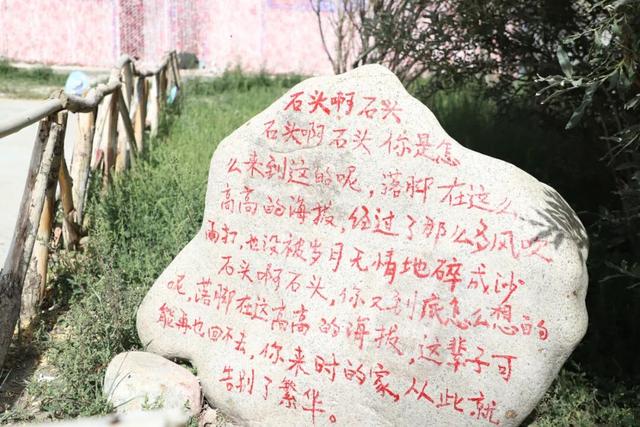 石头啊石头
石头啊石头你是怎
么来到这的呢，落脚在这么
高高的海拔，经过了那么多风吹
雨打，也没被岁月无情地碎成沙
石头啊石头，你又到底怎么想的
呢，落脚在这高高的海拔，这辈子可
能再也回不去，你来时的家，从此就
告别了繁华。